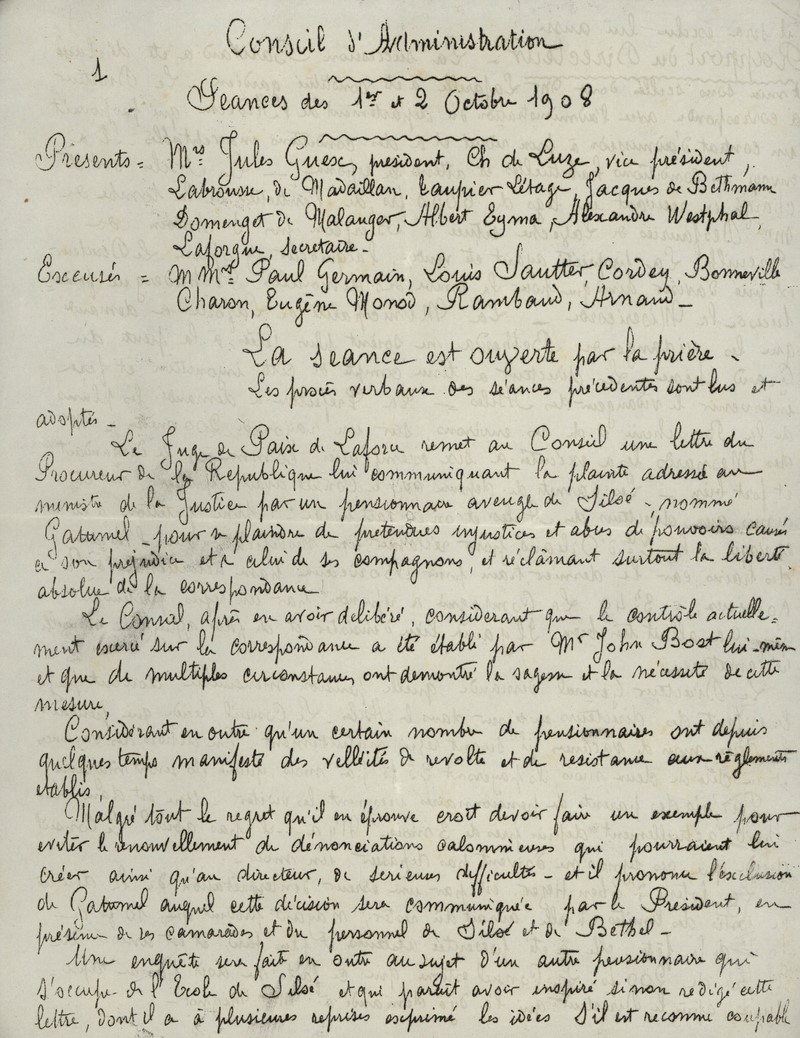 Conseil d'Administration
1
Séances des 1er et 2 Octobre 1908
Présents = Mrs Jules Guex, président, Ch de Luze, vice président,
Labrousse, de Madaillan, Laupier Létage, Jacques de Bethmann
Domenget de Malauger, Albert Eyma, Alexandre Westphal,
Laforgue, secretaire -
Excusés = M Mrs Paul Germain, Louis Sautter, Cordey, Bonneville
Charon, Eugène Monod, Rambaud, Arnaud -
La séance est ouverte par la prière -
Les procès verbaux des séances précédentes sont lus et
adoptés -
Le Juge de Paix de Laforce remet au Conseil une lettre du
Procureur de la Republique lui communiquant la plainte adressée au
ministre de la Justice par un pensionnaire aveugle de Siloé, nommé
Gatumel - pour se plaindre de pretendues injustices et abus de pouvoirs causés
a son préjudice et a celui de ses compagnons, et réclamant surtout la liberté
absolue de la correspondance
Le Conseil, après en avoir delibéré, considerant que le contrôle actuelle=
ment exercé sur la correspondance a été établi par Mr John Bost lui-même
et que de multiples circonstances ont demontré la sagesse et la nécessité de cette
mesure,
Considérant en outre qu'un certain nombre de pensionnaires ont depuis
quelques temps manifesté des velléités de revolte et de resistance aux règlements
etablis,
Malgré tout le regret qu'il en éprouve croit devoir faire un exemple pour
eviter le renouvellement de dénonciations calomnieuses qui pourraient lui
créer ainsi qu'au directeur, de serieuses difficultés - et il prononce l'exclusion
de Gatumel auquel cette décision sera communiquée par le Président, en
présence de ses camarades et du personnel de Siloé et de Béthel -
Une enquête sera faite en outre au sujet d'un autre pensionnaire qui
s'occupe de l'Ecole de Siloé et qui paraît avoir inspiré sinon redigé cette
lettre, dont il a à plusieures reprises exprimé les idées S'il est reconnu coupable